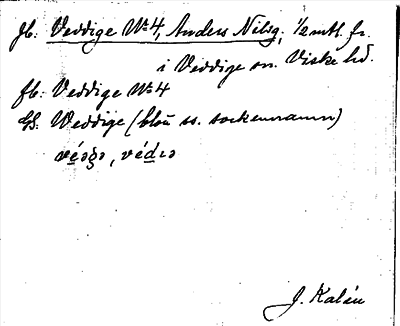 Jb. Veddige No 4, Anders Nilsg, 1/2 mtl. fr.
i Veddige sn. Viske hd.
fb. Veddige No 4
GS. Weddige (blott ss. sockennamn)
vé̱əgə, véd̲ıə
J. Kalén